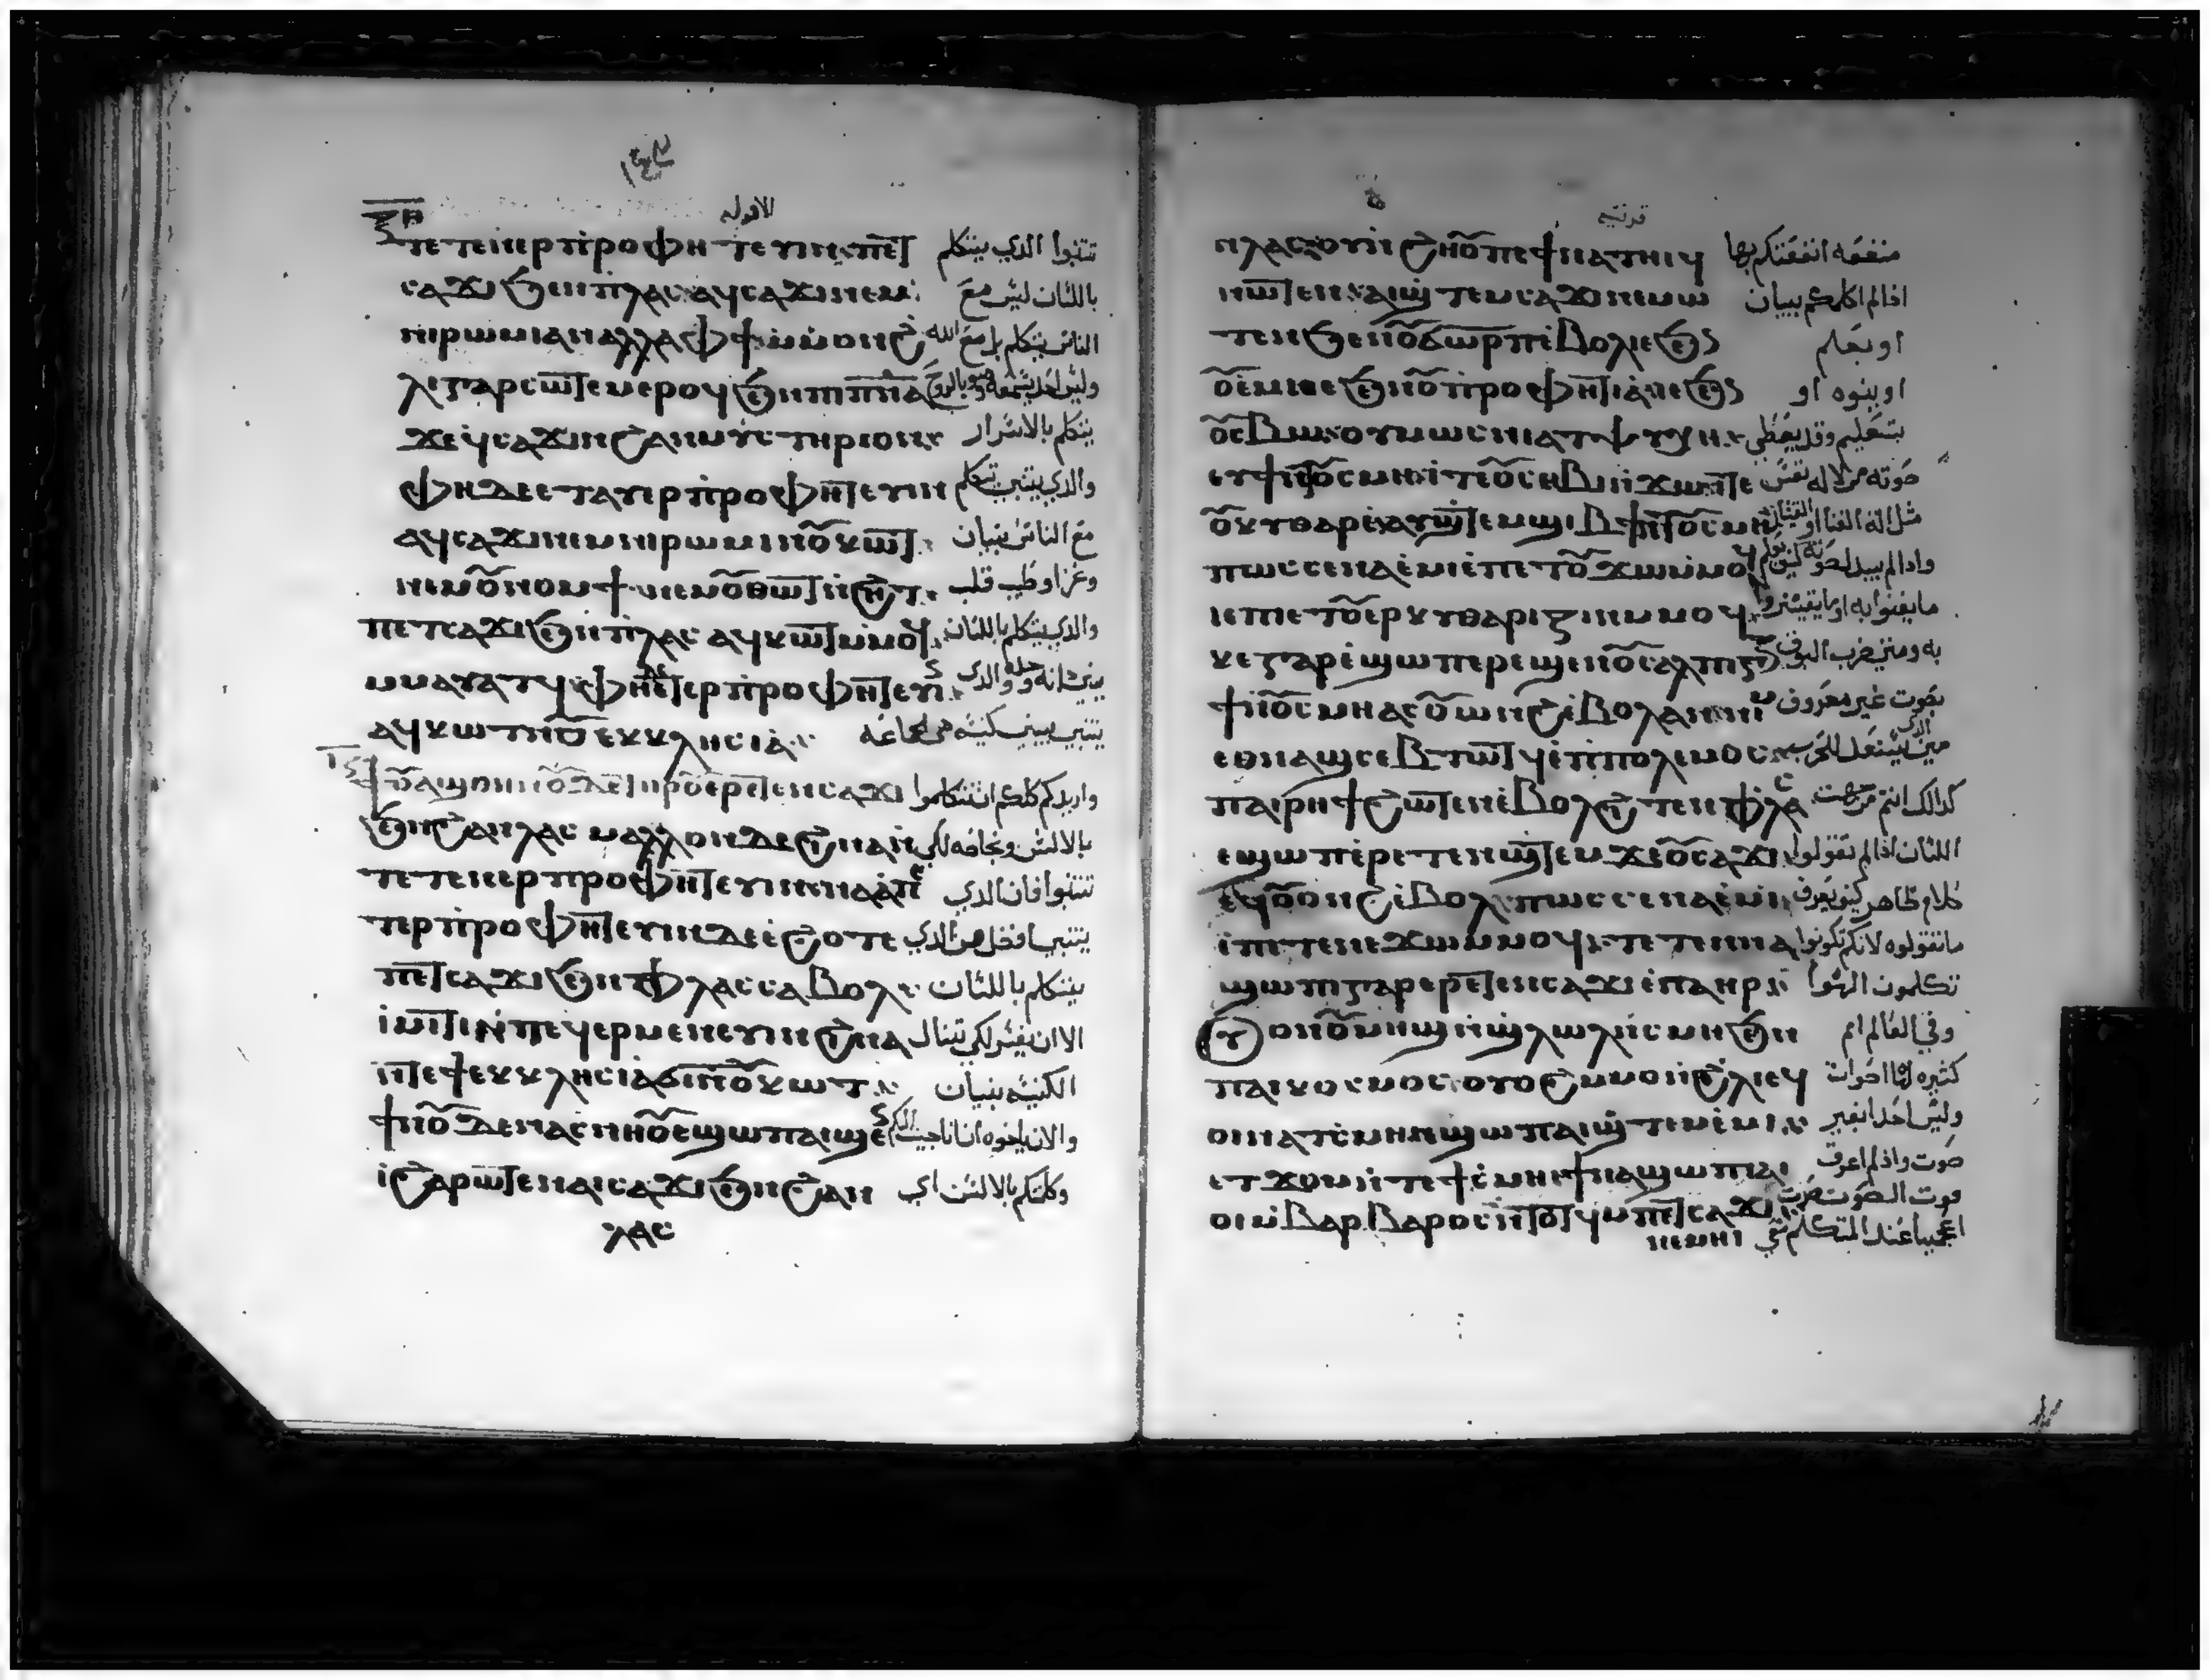 الاوله
ⲧⲉⲧⲉⲛⲉⲣⲡⲣⲟⲫⲏⲧⲉⲩⲓⲛ ⲡⲉⲧ تتنبوا الذي يتكلم
ⲥⲁϫⲓ ϧⲉⲛ ⲡⲗⲁⲥ ⲁϥⲥⲁϫⲓ ⲛⲉⲙ باللسان ليس مع
ⲛⲓⲣⲱⲙⲓ ⲁⲛ ⲁⲗⲗⲁ ⲫϯ ⲙⲙⲟⲛ ϩ الناس يتكلم بل مع الله
ⲗⲓ ⲅⲁⲣ ⲥⲱⲧⲉⲙ ⲉⲣⲟϥ ϧⲉⲛ ⲡⲓⲡⲛⲁ وليس احد يسمعه
ϫⲉ ϥⲥⲁϫⲓ ⲛϩⲁⲛⲙⲩⲥⲧⲏⲣⲓⲟⲛ يتكلم بالاسرار
ⲫⲏ ⲇⲉ ⲉⲧⲁⲩⲉⲣⲡⲣⲟⲫⲏⲧⲉⲩⲓⲛ والذي يتنبى يتكلم
ⲁϥⲥⲁϫⲓ ⲛⲉⲙ ⲛⲓⲣⲱⲙⲓ ⲛⲟⲩⲕⲱⲧ مع الناس بنيان
ⲛⲉⲙ ⲟⲩⲛⲟⲙϯ ⲛⲉⲙ ⲟⲩⲑⲱⲧ ⲛϩⲏⲧ وعزا وطيب قلب
ⲡⲉⲧⲥⲁϫⲓ ϧⲉⲛ ⲡⲗⲁⲥ ⲁϥⲕⲱⲧ ⲙⲙⲟϥ والذي يتكلم باللسان
ⲙⲙⲁⲩⲁⲧϥ ⲫⲏ ⲇⲉ ⲉⲧⲉⲣⲡⲣⲟⲫⲏⲧⲉⲩⲓⲛ والذي
ⲁϥⲕⲱⲧ ⲛⲟⲩⲉⲕⲕⲗⲏⲥⲓⲁ يتنبى يبني كنيسه
ϯⲟⲩⲱϣ ⲇⲉ ⲧⲏⲣⲟⲩ ⲉⲣⲉⲧⲉⲛⲥⲁϫⲓ واريدكم كلكم ان تتكلموا
ϧⲉⲛ ϩⲁⲛⲗⲁⲥ ⲙⲁⲗⲗⲟⲛ ⲇⲉ ϩⲓⲛⲁ ⲛ بالالسن وبخاصه لكي
ⲧⲉⲧⲉⲛⲉⲣⲡⲣⲟⲫⲏⲧⲉⲩⲓⲛ ⲛⲁⲁ ⲡⲉ تتنبوا فان الذي
ⲧⲉⲣⲡⲣⲟⲫⲏⲧⲉⲩⲓⲛ ⲇⲉ ⲉϩⲟⲧⲉ يتنبى افضل من الذي
ⲡⲉⲧⲥⲁϫⲓ ϧⲉⲛ ⲫⲗⲁⲥ ⲥⲁⲃⲟⲗ يتكلم باللسان
ⲓⲙⲏⲧⲓ ⲛⲧⲉϥⲉⲣⲙⲉⲛⲉⲩⲓⲛ ϩⲓⲛⲁ الا ان يفسر لكي تنال
ⲛⲧⲉ ϯⲉⲕⲕⲗⲏⲥⲓⲁ ϭⲓ ⲛⲟⲩⲕⲱⲧ الكنيسه بنيان
ϯⲛⲟⲩ ⲇⲉ ⲛⲁⲥⲛⲏⲟⲩ ⲉϣⲱⲡ ⲁⲓϣⲉ والان يا اخوه ان انا جيت اليكم
ⲓ ϩⲁⲣⲱⲧⲉⲛ ⲁⲓⲥⲁϫⲓ ϧⲉⲛ ϩⲁⲛ وكلمتكم بالالسن اي
ⲗⲁⲥ
قرنتيه
ⲛⲗⲁⲥ ⲟⲩ ⲛϩⲏⲟⲩ ⲡⲉϯⲛⲁⲧⲏⲓϥ منفعه انفعتكم بها
ⲛⲱⲧⲉⲛ ⲁⲓϣⲧⲉⲙⲥⲁϫⲓ ⲛⲉⲙⲱ اذا لم اكلمكم ببيان
ⲧⲉⲛ ϧⲉⲛ ⲟⲩϭⲱⲣⲡ ⲉⲃⲟⲗ ⲓⲉ ϧⲉⲛ او بعلم
ⲟⲩⲉⲙⲓ ⲓⲉ ϧⲉⲛ ⲟⲩⲡⲣⲟⲫⲏⲧⲓⲁ ⲓⲉ ϧⲉⲛ او بنبوه او
ⲟⲩⲥⲃⲱ ⲟⲙⲱⲥ ⲛⲓⲁⲧⲯⲩⲭⲏ بتعليم وقد يعطي
ⲉⲩϯ ⲛⲟⲩⲥⲙⲏ ⲓⲧⲉ ⲟⲩⲥⲏⲃⲓ ⲛϫⲱ ⲓⲧⲉ صوته من لا له نفس
ⲟⲩⲕⲩⲑⲁⲣⲁ ⲁⲩϣⲧⲉⲙϣⲓⲃϯ ⲛⲧⲟⲩⲥⲙⲏ
ⲡⲱⲥ ⲥⲉⲛⲁⲉⲙⲓ ⲉⲡⲉⲧⲟⲩϫⲱ ⲙⲙⲟϥ
ⲓⲉ ⲡⲉⲧⲟⲩⲉⲣⲕⲩⲑⲁⲣⲓⲍⲓⲛ ⲙⲙⲟϥ
ⲕⲉ ⲅⲁⲣ ⲉϣⲱⲡ ⲉⲣⲉϣⲁⲛ ⲟⲩⲥⲁⲗⲡⲓⲅⲝ به ومتى ضرب البوق
ϯ ⲛⲟⲩⲥⲙⲏ ⲁⲥⲟⲩⲱⲛϩ ⲉⲃⲟⲗ ⲁⲛ ⲛⲓⲙ بصوت غير معروف
ⲉⲑⲛⲁϣⲥⲉⲃⲧⲱⲧϥ ⲉⲡⲡⲟⲗⲉⲙⲟⲥ من الذي يستعد للحرب
ⲡⲁⲓⲣⲏϯ ϩⲱⲧⲉⲛ ⲉⲃⲟⲗ ϩⲓⲧⲉⲛ ⲫⲗⲁⲥ كذلك انتم من جهت
ⲉϣⲱⲡ ⲉⲣⲉⲧⲉⲛϣⲧⲉⲙϫⲉ ⲟⲩⲥⲁϫⲓ اللسان اذا لم تقولوا
ⲉϥⲟⲩⲟⲛϩ ⲉⲃⲟⲗ ⲡⲱⲥ ⲥⲉⲛⲁⲉⲙⲓ كلام ظاهر كيف يعرف
ⲉⲡⲉⲧⲉⲧⲉⲛϫⲱ ⲙⲙⲟϥ ⲧⲉⲧⲉⲛⲛⲁ ما تقولوه لانكم تكونوا
ϣⲱⲡⲓ ⲅⲁⲣ ⲉⲣⲉⲧⲉⲛⲥⲁϫⲓ ⲉⲡⲁⲏⲣ تكلمون الهوا
ⲟⲩⲟⲛ ⲟⲩⲙⲏϣ ⲛϣⲗⲱⲗ ⲛⲥⲙⲏ ϧⲉⲛ وفي العالم امم
ⲡⲁⲓⲕⲟⲥⲙⲟⲥ ⲟⲩⲟϩ ⲙⲙⲟⲛ ϩⲗⲓ ⲉϥ كثيره لها اصوات
ⲟⲓ ⲛⲁⲧⲥⲙⲏ ⲉϣⲱⲡ ⲁⲓϣⲧⲉⲙⲉⲙⲓ وليس احد بغير
ⲉⲧϫⲟⲙ ⲛⲧⲉ ϯⲥⲙⲏ ϯⲛⲁϣⲱⲡⲓ صوت واذا لم اعرف
ⲟⲓ ⲙⲃⲁⲣⲃⲁⲣⲟⲥ ⲛⲧⲟⲧϥ ⲙⲡⲉⲧⲥⲁϫⲓ قوت الصوت صرت
ⲛⲉⲙⲏⲓ اعجميا عند المتكلم معي